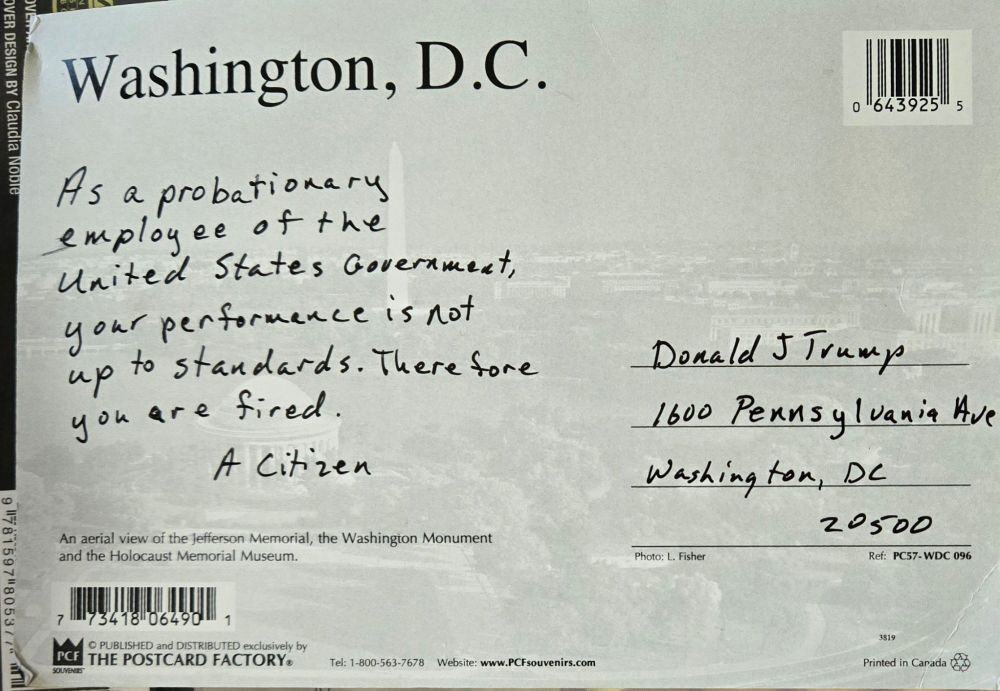 OVER DESIGN BY Claudia Noble
Washington, D.C.
0 643925 5
As a probationary
employee of the
United States Government,
your performance is not
up to standards. Therefore
you are fired.
A Citizen
Donald J Trump
1600 Pennsylvania Ave
Washington, DC
20500
An aerial view of the Jefferson Memorial, the Washington Monument
and the Holocaust Memorial Museum.
Photo: L. Fisher
Ref: PC57-WDC 096
7 73418 06490 1
PCF
SOUVENIRS
© PUBLISHED and DISTRIBUTED exclusively by
THE POSTCARD FACTORY®
Tel: 1-800-563-7678 Website: www.PCFsouvenirs.com
3819
Printed in Canada